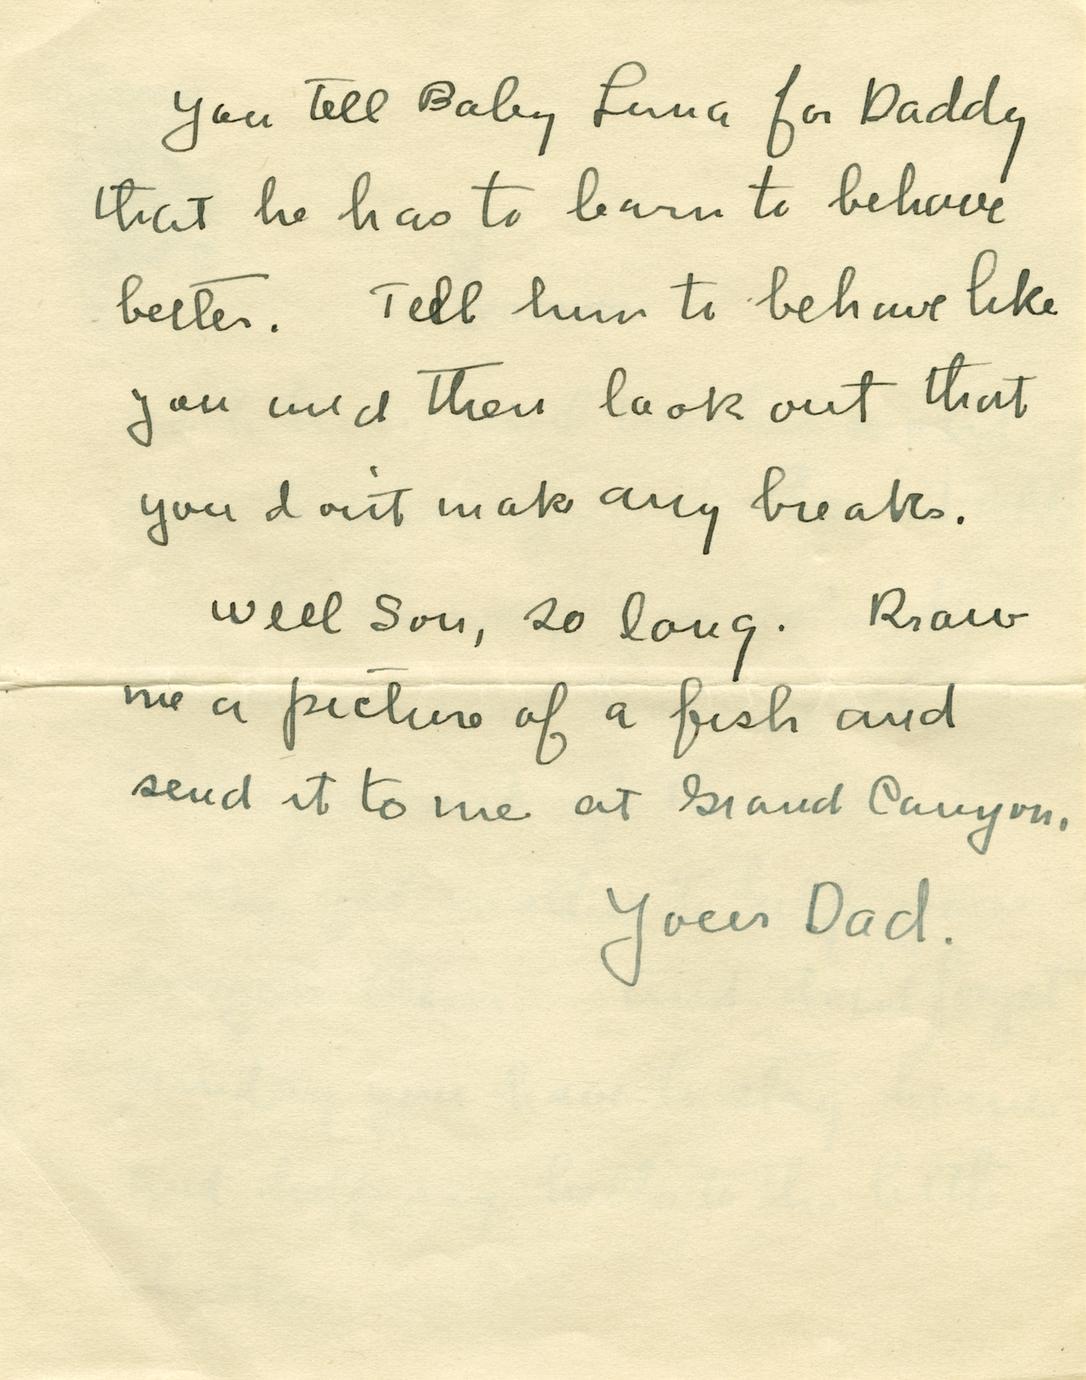 You tell Baby Luna for Daddy
that he has to learn to behave
better. Tell him to behave like
you and then look out that
you don't make any breaks.
Well Son, so long. Draw
me a picture of a fish and
send it to me at Grand Canyon.
Your Dad.